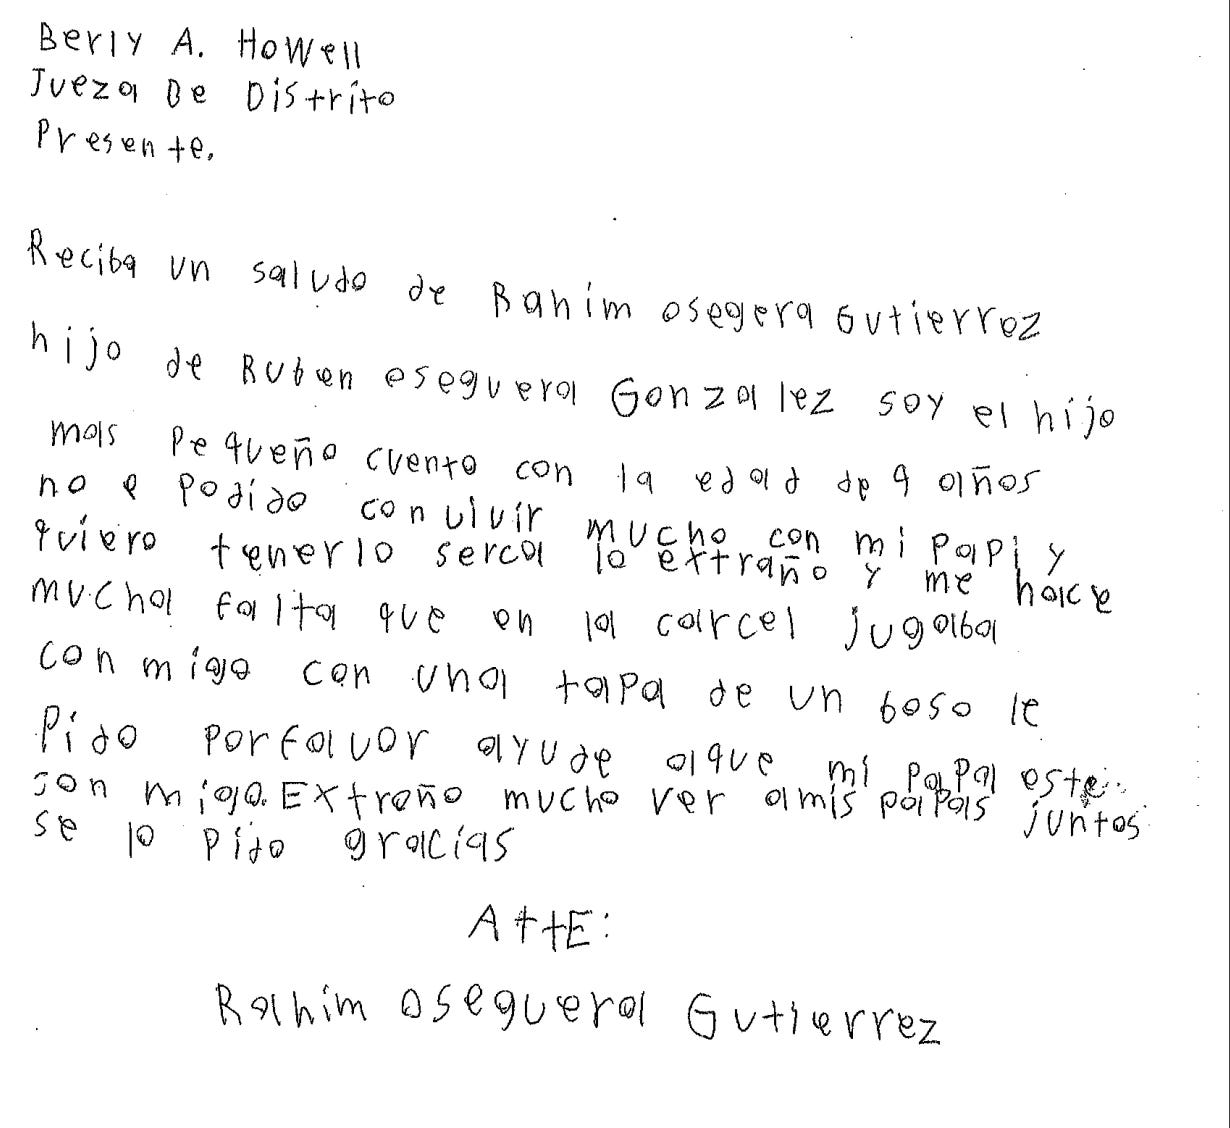 Berly A. Howell
Jueza De Distrito
Presente.
Reciba un saludo de Rahim osegera Gutierrez
hijo de Ruben oseguera Gonzalez soy el hijo
mas Pequeño cuento con la edad de 9 años
no e podido convivir mucho con mi papi y
quiero tenerlo serca lo extraño y me hace
mucha falta que en la carcel jugaba
con migo con una tapa de un boso le
Pido porfavor ayude aque mi papa este
con migo. Extraño mucho ver amis papas juntos
se lo pido gracias
AttE:
Rahim oseguera Gutierrez